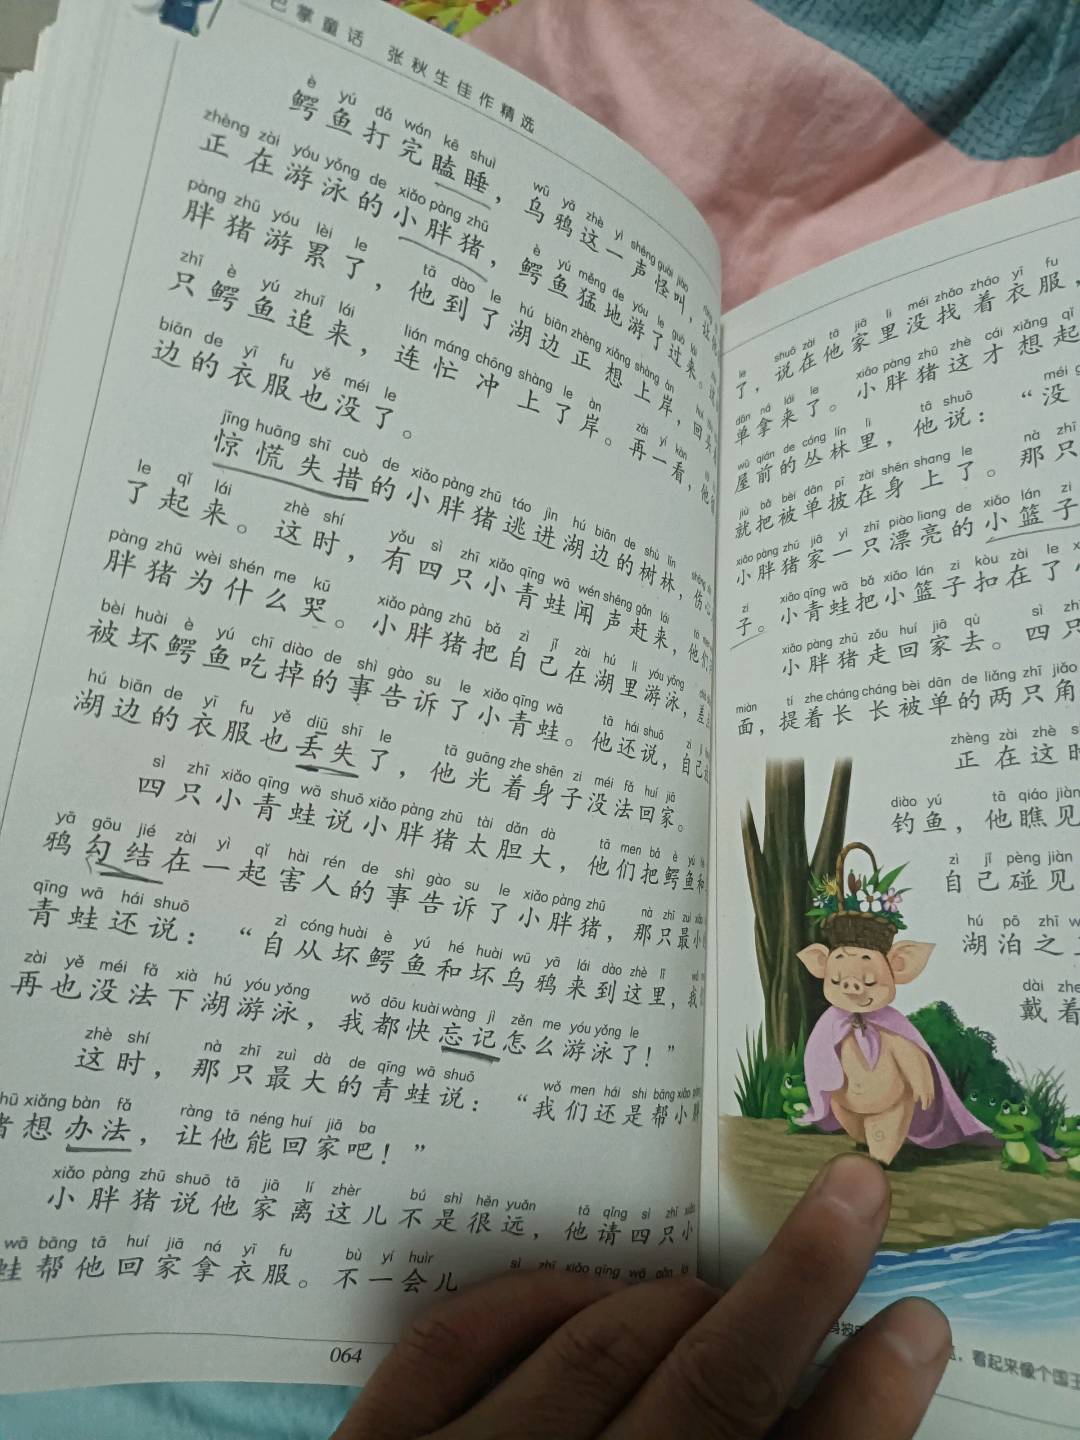 巴掌童话 张秋生佳作精选
è yú dǎ wán kē shuì wū yā zhè yì shēng guài jiào
鳄鱼打完瞌睡，乌鸦这一声怪叫，让
zhèng zài yóu yǒng de xiǎo pàng zhū è yú měng de yóu le guò lái
正在游泳的小胖猪，鳄鱼猛地游了过来。
pàng zhū yóu lèi le tā dào le hú biān zhèng xiǎng shàng àn
胖猪游累了，他到了湖边正想上岸，回头
zhī è yú zhuī lái lián máng chōng shàng le àn zài yí kàn
只鳄鱼追来，连忙冲上了岸。再一看，他
biān de yī fu yě méi le
边的衣服也没了。
jīng huāng shī cuò de xiǎo pàng zhū táo jìn hú biān de shù lín
惊慌失措的小胖猪逃进湖边的树林，伤心
le qǐ lái zhè shí yǒu sì zhī xiǎo qīng wā wén shēng gǎn lái
了起来。这时，有四只小青蛙闻声赶来，他们
pàng zhū wèi shén me kū xiǎo pàng zhū bǎ zì jǐ zài hú li yóu yǒng
胖猪为什么哭。小胖猪把自己在湖里游泳，差
bèi huài è yú chī diào de shì gào su le xiǎo qīng wā tā hái shuō
被坏鳄鱼吃掉的事告诉了小青蛙。他还说，自己
hú biān de yī fu yě diū shī le tā guāng zhe shēn zi méi fǎ huí jiā
湖边的衣服也丢失了，他光着身子没法回家。
sì zhī xiǎo qīng wā shuō xiǎo pàng zhū tài dǎn dà tā men bǎ è yú
四只小青蛙说小胖猪太胆大，他们把鳄鱼和
yā gōu jié zài yì qǐ hài rén de shì gào su le xiǎo pàng zhū nà zhī zuì
鸦勾结在一起害人的事告诉了小胖猪，那只最小
qīng wā hái shuō zì cóng huài è yú hé huài wū yā lái dào zhè lǐ
青蛙还说：“自从坏鳄鱼和坏乌鸦来到这里，我
zài yě méi fǎ xià hú yóu yǒng wǒ dōu kuài wàng jì zěn me yóu yǒng le
再也没法下湖游泳，我都快忘记怎么游泳了！”
zhè shí nà zhī zuì dà de qīng wā shuō wǒ men hái shi bāng xiǎo
这时，那只最大的青蛙说：“我们还是帮小胖
zhū xiǎng bàn fǎ ràng tā néng huí jiā ba
猪想办法，让他能回家吧！”
xiǎo pàng zhū shuō tā jiā lí zhèr bú shì hěn yuǎn tā qǐng sì zhī xiǎo
小胖猪说他家离这儿不是很远，他请四只小
wā bāng tā huí jiā ná yī fu bù yí huìr
蛙帮他回家拿衣服。不一会儿
064
le shuō zài tā jiā li méi zhǎo zháo yī fu
了，说在他家里没找着衣服，
dān ná lái le xiǎo pàng zhū zhè cái xiǎng qǐ
单拿来了。小胖猪这才想起
wū qián de cóng lín lǐ tā shuō
屋前的丛林里，他说：“没
jiù bǎ bèi dān pī zài shēn shang le nà zhī
就把被单披在身上了。那只
xiǎo pàng zhū jiā yì zhī piào liang de xiǎo lán zi
小胖猪家一只漂亮的小篮子
zi xiǎo qīng wā bǎ xiǎo lán zi kòu zài le
子。小青蛙把小篮子扣在了
xiǎo pàng zhū zǒu huí jiā qù sì zhī
小胖猪走回家去。四只
miàn tí zhe cháng cháng bèi dān de liǎng zhī jiǎo
面，提着长长被单的两只角
zhèng zài zhè
正在这时
diào yú tā qiáo jiàn
钓鱼，他瞧见
zì jǐ pèng jiàn
自己碰见
hú pō zhī
湖泊之
dài zhe
戴着
，看起来像个国王